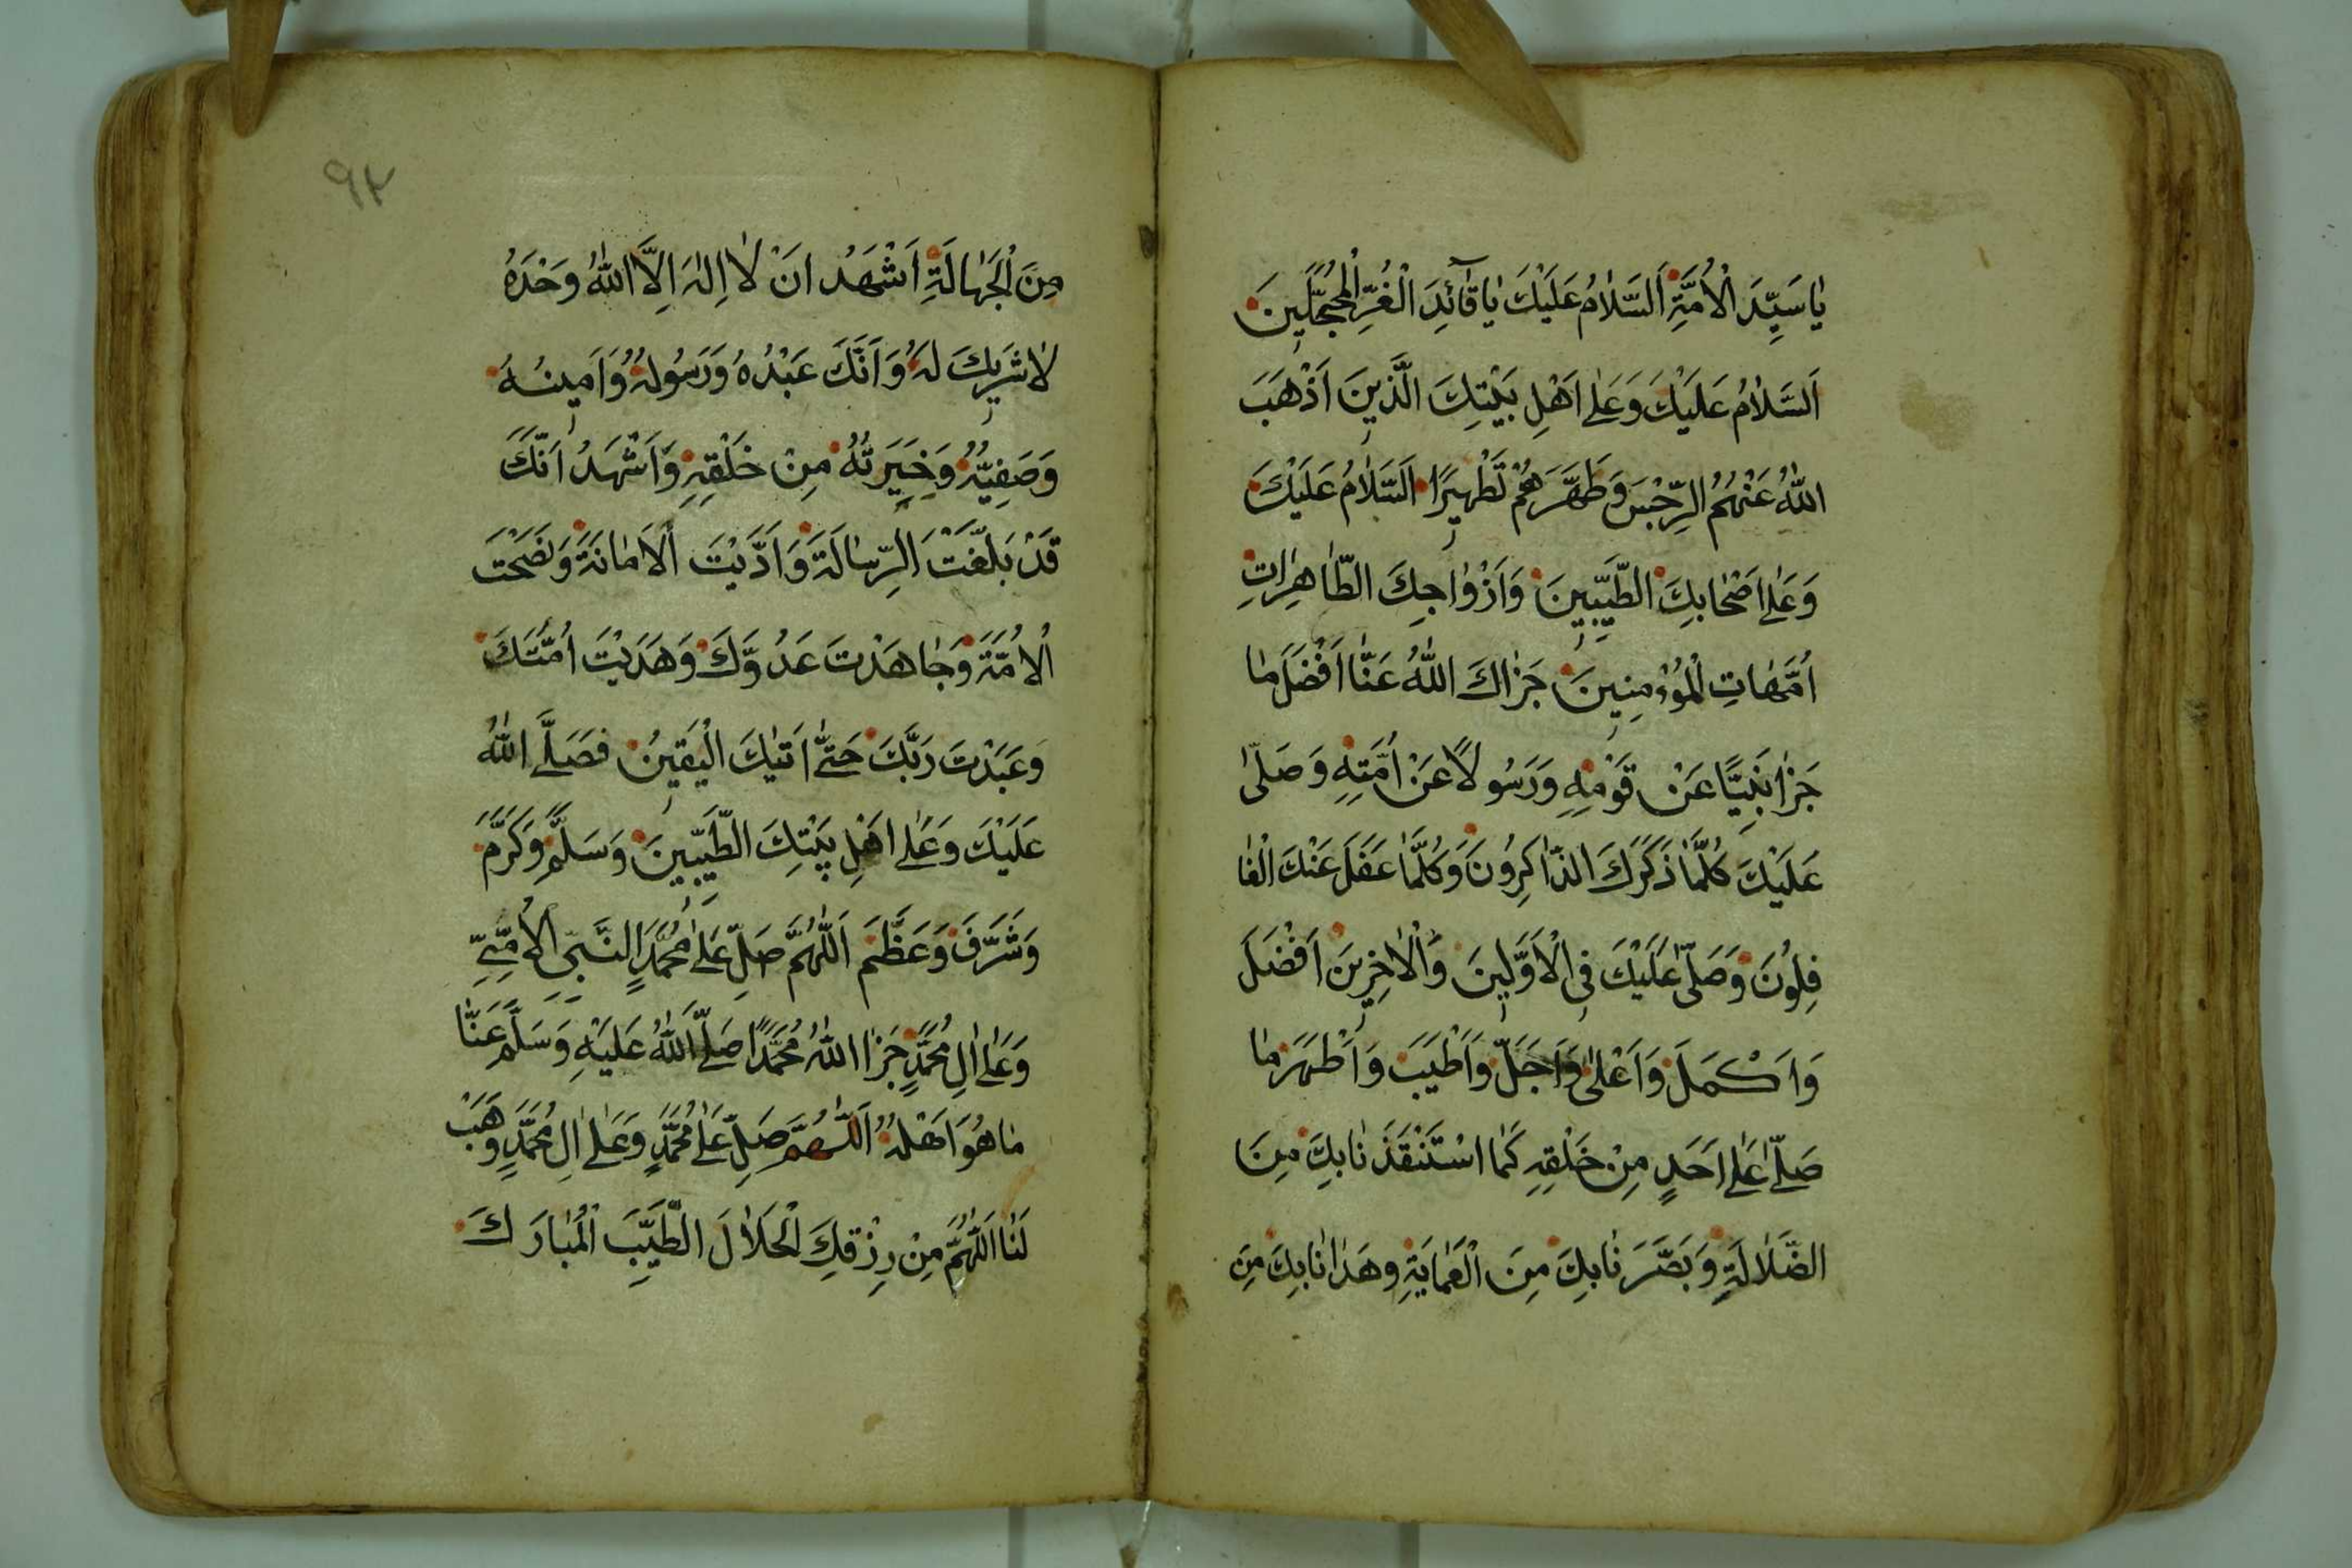 يَا سَيِّدَ الْاُمَّةِ اَلسَّلَامُ عَلَيْكَ يَا قَآئِدَ الْغُرِّ الْمُحَجَّلِينَ
اَلسَّلَامُ عَلَيْكَ وَعَلٰى اَهْلِ بَيْتِكَ الَّذِينَ اَذْهَبَ
اللّٰهُ عَنْهُمُ الرِّجْسَ وَطَهَّرَهُمْ تَطْهِيرًا اَلسَّلَامُ عَلَيْكَ
وَعَلٰى اَصْحَابِكَ الطَّيِّبِينَ وَاَزْوَاجِكَ الطَّاهِرَاتِ
اُمَّهَاتِ الْمُؤْمِنِينَ جَزَاكَ اللّٰهُ عَنَّا اَفْضَلَ مَا
جَزَا نَبِيًّا عَنْ قَوْمِهِ وَرَسُولًا عَنْ اُمَّتِهِ وَصَلّٰى
عَلَيْكَ كُلَّمَا ذَكَرَكَ الذَّاكِرُونَ وَكُلَّمَا غَفَلَ عَنْكَ الْغَا
فِلُونَ وَصَلّٰى عَلَيْكَ فِي الْاَوَّلِينَ وَالْاٰخِرِينَ اَفْضَلَ
وَاَكْمَلَ وَاَعْلٰى وَاَجَلَّ وَاَطْيَبَ وَاَطْهَرَ مَا
صَلّٰى عَلٰى اَحَدٍ مِنْ خَلْقِهِ كَمَا اسْتَنْقَذَنَا بِكَ مِنَ
الضَّلَالَةِ وَبَصَّرَنَا بِكَ مِنَ الْعَمَايَةِ وَهَدَانَا بِكَ مِنَ
٩٢
مِنَ الْجَهَالَةِ اَشْهَدُ اَنْ لَا اِلٰهَ اِلَّا اللّٰهُ وَحْدَهُ
لَا شَرِيكَ لَهُ وَاَنَّكَ عَبْدُهُ وَرَسُولُهُ وَاَمِينُهُ
وَصَفِيُّهُ وَخِيَرَتُهُ مِنْ خَلْقِهِ وَاَشْهَدُ اَنَّكَ
قَدْ بَلَّغْتَ الرِّسَالَةَ وَاَدَّيْتَ الْاَمَانَةَ وَنَصَحْتَ
الْاُمَّةَ وَجَاهَدْتَ عَدُوَّكَ وَهَدَيْتَ اُمَّتَكَ
وَعَبَدْتَ رَبَّكَ حَتّٰى اَتٰيكَ الْيَقِينُ فَصَلَّى اللّٰهُ
عَلَيْكَ وَعَلٰى اَهْلِ بَيْتِكَ الطَّيِّبِينَ وَسَلَّمَ وَكَرَّمَ
وَشَرَّفَ وَعَظَّمَ اَللّٰهُمَّ صَلِّ عَلٰى مُحَمَّدٍ النَّبِيِّ الْاُمِّيِّ
وَعَلٰى اٰلِ مُحَمَّدٍ جَزَا اللّٰهُ مُحَمَّدًا صَلَّى اللّٰهُ عَلَيْهِ وَسَلَّمَ عَنَّا
مَا هُوَ اَهْلُهُ اَللّٰهُمَّ صَلِّ عَلٰى مُحَمَّدٍ وَعَلٰى اٰلِ مُحَمَّدٍ وَهَبْ
لَنَا اَللّٰهُمَّ مِنْ رِزْقِكَ الْحَلَالَ الطَّيِّبَ الْمُبَارَكَ